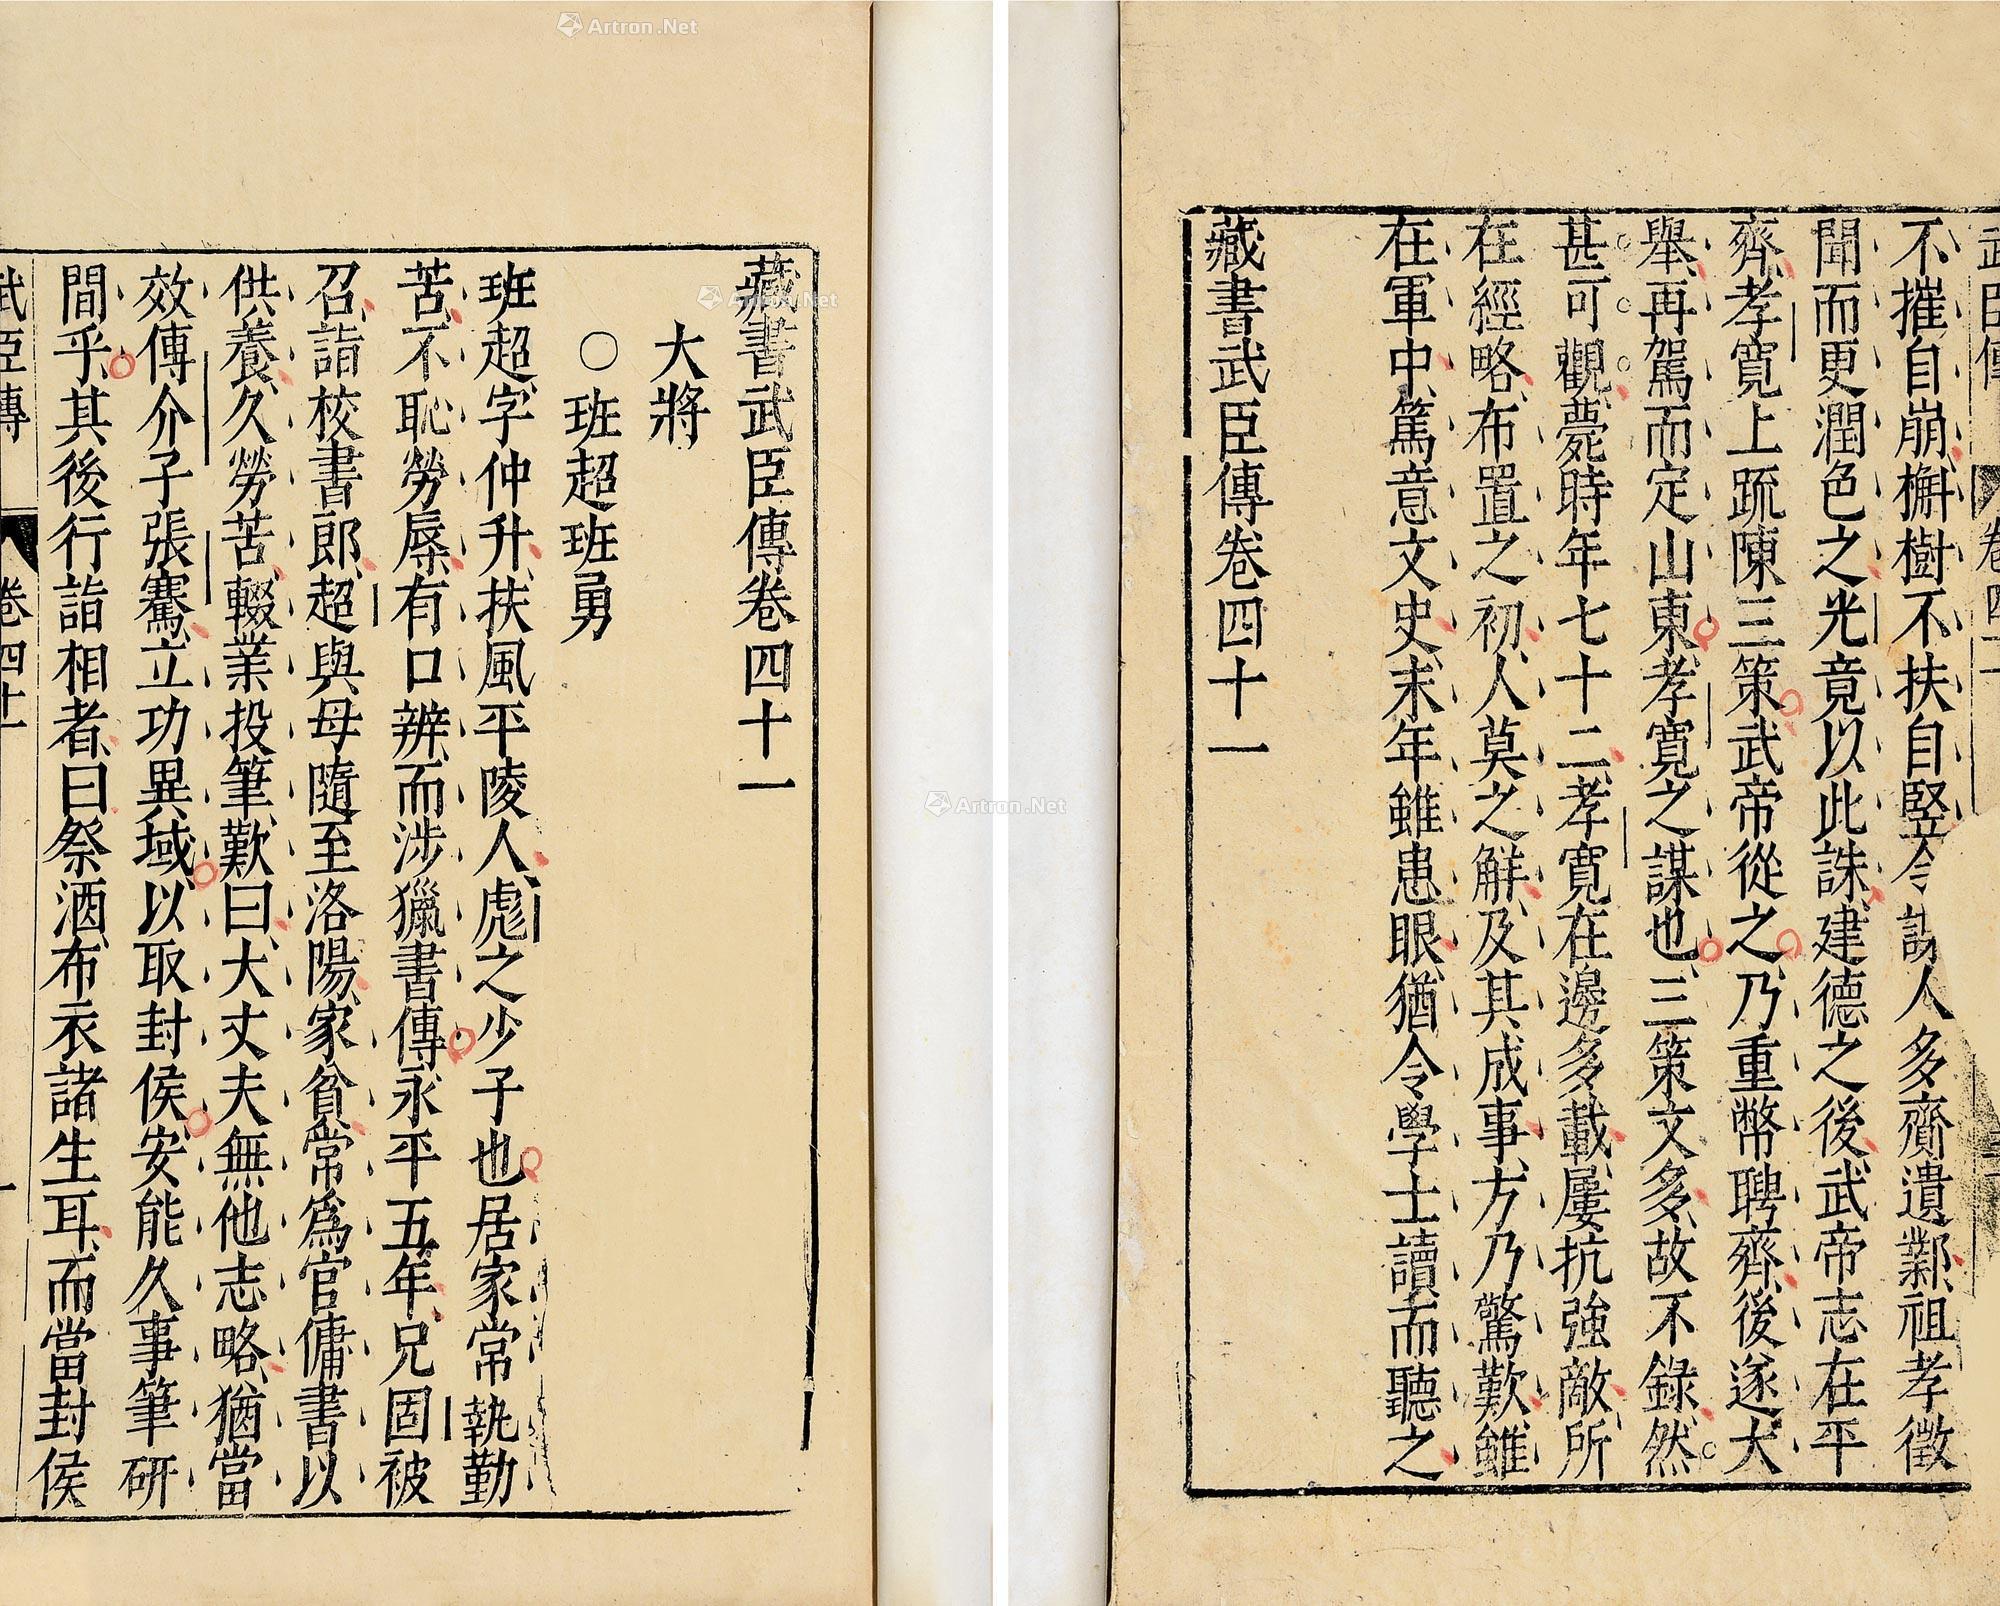 藏書武臣傳卷四十一
大將
○班超班勇
班超字仲升扶風平陵人彪之少子也居家常執勤
苦不恥勞辱有口辨而涉獵書傳永平五年兄固被
召詣校書郎超與母隨至洛陽家貧常爲官傭書以
供養久勞苦輟業投筆歎曰大丈夫無他志略猶當
效傅介子張騫立功異域以取封侯安能久事筆研
間乎其後行詣相者曰祭酒布衣諸生耳而當封侯
武臣傳 卷四十一 一
武臣傳 卷四十一
不摧自崩槲樹不扶自竪令諜人多齎遺鄴祖孝徵
聞而更潤色之光竟以此誅建德之後武帝志在平
齊孝寬上疏陳三策武帝從之乃重幣聘齊後遂大
舉再駕而定山東孝寬之謀也三策文多故不錄然
甚可觀薨時年七十二孝寬在邊多載屢抗強敵所
在經略布置之初人莫之解及其成事方乃驚歎雖
在軍中篤意文史末年雖患眼猶令學士讀而聽之
藏書武臣傳卷四十一
Artron.Net
Artron.Net
Artron.Net